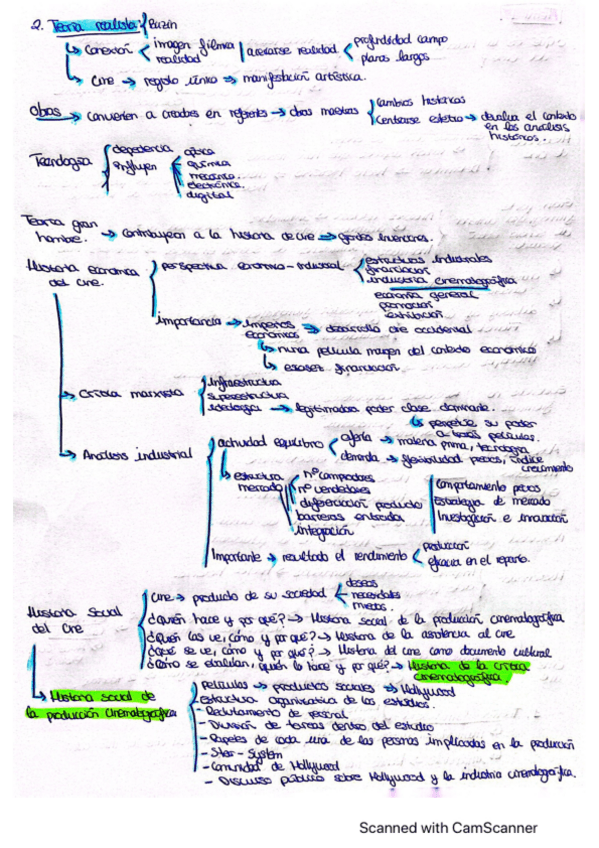 2. Teoria realista: Bazin
↳ Conexión imagen fílmica realidad acercarse realidad profundidad campo planos largos
↳ Cine → registro único → manifestación artística.
Obras → convierten a creadores en referentes → obras maestras cambios históricos
Centrarse estético → devalua el contexto en los análisis históricos.
Tecnología dependencia influyen óptica
química
mecánica
electrónica
digital
Teoría gran hombre. → contribuyeron a la historia de cine → grandes inventores.
Historia económica del cine. perspectiva económica-industrial estructuras industriales
financiación
industria cinematográfica
economía general
promoción
exhibición
importancia → imperios económicos → desarrollo cine occidental
↳ nunca película margen del contexto económico
↳ escasez financiación
→ Crítica marxista infraestructura
superestructura
ideología → legitimadora poder clase dominante.
↳ perpetúe su poder a través películas.
→ Análisis industrial actividad equilibro oferta → materia prima, tecnología
demanda → flexibilidad precios, índice crecimiento
↳ estructura mercado nº compradores
nº vendedores
diferenciación producto
barreras entrada
integración
comportamiento precios
Estrategia de mercado
Investigación e innovación
Importante → resultado el rendimiento producción
eficacia en el reparto.
Historia Social del Cine cine → producto de su sociedad deseos
necesidades
miedos.
¿Quién hace y por qué? → Historia social de la producción cinematográfica
¿Quién las ve, cómo y por qué? → Historia de la asistencia al cine
¿Qué se ve, cómo y por qué? → Historia del cine como documento cultural
¿Cómo se evalúan, quién lo hace y por qué? → Historia de la crítica cinematográfica.
↳ Historia social de la producción cinematográfica
películas → productos sociales → Hollywood
estructura organizativa de los estudios.
- Reclutamiento de personal
- División de tareas dentro del estudio
- Papeles de cada una de las personas implicadas en la producción
- Star-System
- Comunidad de Hollywood
- Discurso público sobre Hollywood y la industria cinematográfica.
Scanned with CamScanner